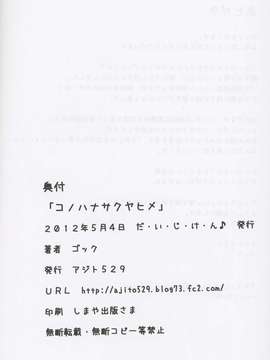 奥付
「コノハナサクヤヒメ」
2012年5月4日 だ・い・じ・け・ん♪ 発行
著者 ゴック
発行 アジト529
URL http://ajito529.blog73.fc2.com/
印刷 しまや出版さま
無断転載・無断コピー等禁止